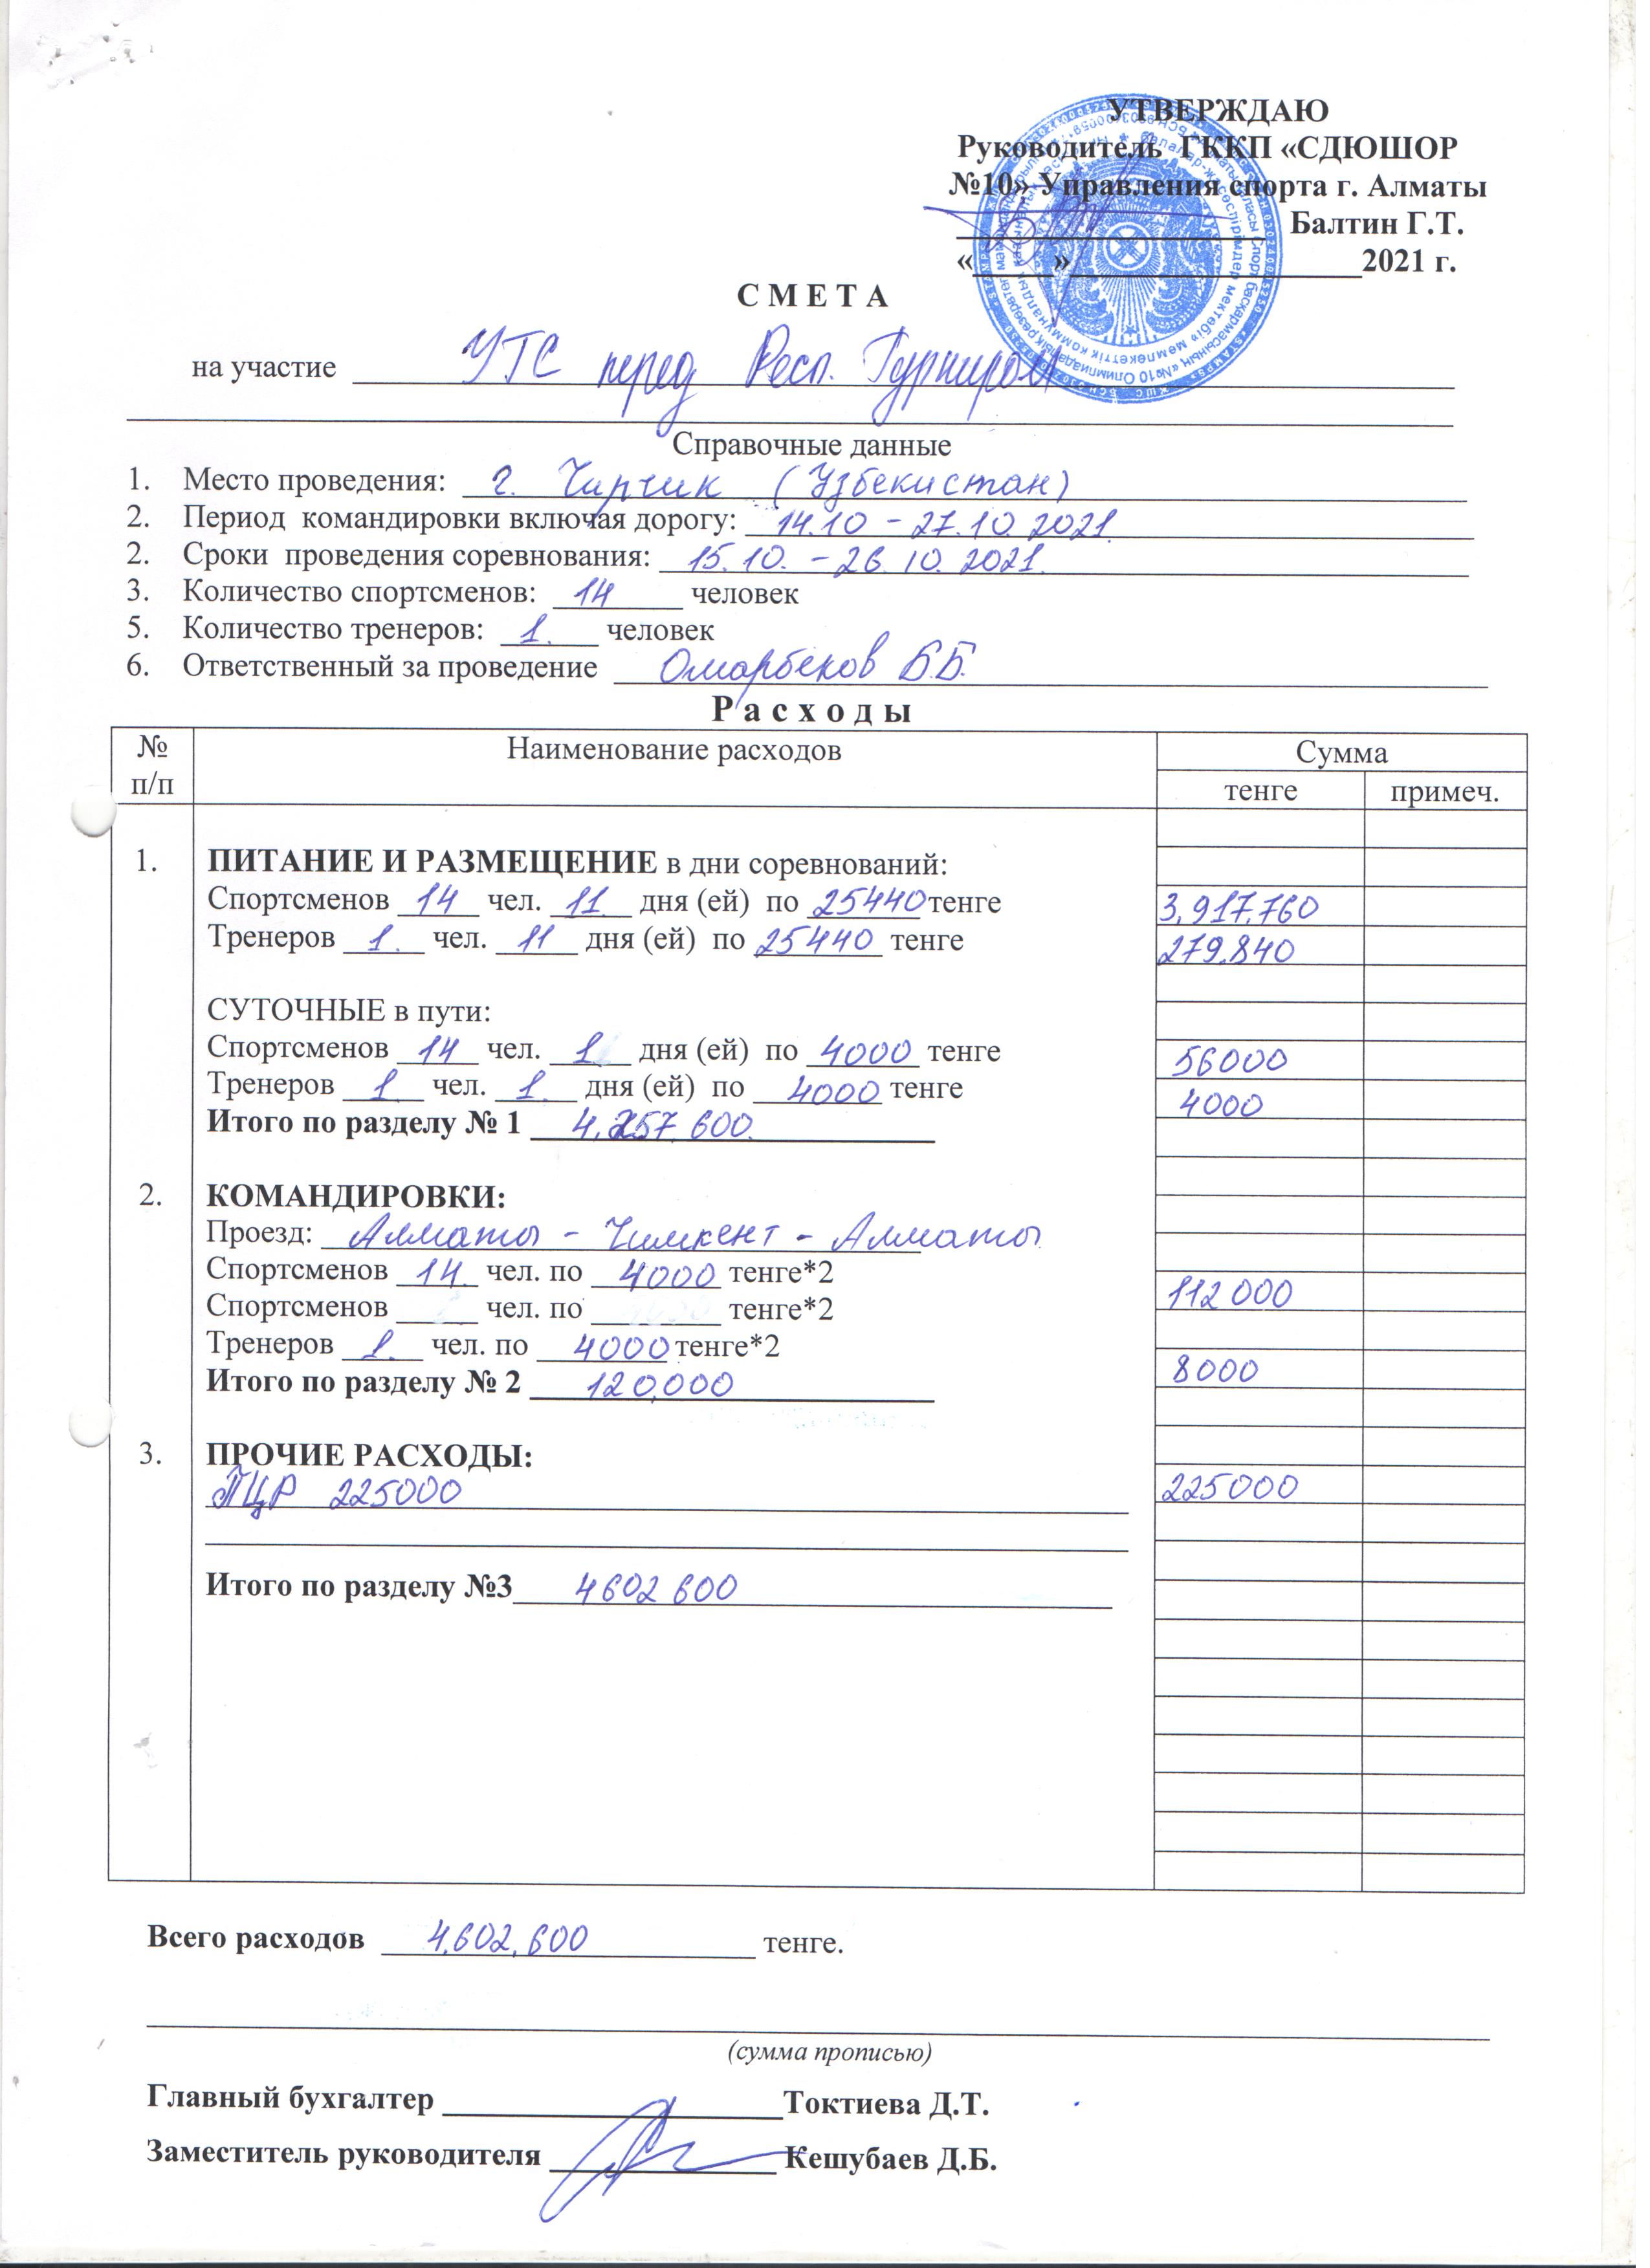 УТВЕРЖДАЮ
Руководитель ГККП «СДЮШОР
№10» Управления спорта г. Алматы
Балтин Г.Т.
« » 2021 г.
С М Е Т А
на участие УТС перед Респ. Турниром
Справочные данные
1. Место проведения: г. Чирчик (Узбекистан)
2. Период командировки включая дорогу: 14.10 - 27.10.2021.
2. Сроки проведения соревнования: 15.10. - 26.10.2021.
3. Количество спортсменов: 14 человек
5. Количество тренеров: 1. человек
6. Ответственный за проведение Омарбеков Б.Б.
Р а с х о д ы
№ п/п Наименование расходов Сумма
тенге примеч.
1. ПИТАНИЕ И РАЗМЕЩЕНИЕ в дни соревнований:
Спортсменов 14 чел. 11 дня (ей) по 25440 тенге 3,917,760
Тренеров 1. чел. 11 дня (ей) по 25440 тенге 279.840
СУТОЧНЫЕ в пути:
Спортсменов 14 чел. 1 дня (ей) по 4000 тенге 56000
Тренеров 1 чел. 1. дня (ей) по 4000 тенге 4000
Итого по разделу № 1 4.257.600.
2. КОМАНДИРОВКИ:
Проезд: Алматы - Чимкент - Алматы
Спортсменов 14 чел. по 4000 тенге*2 112 000
Спортсменов чел. по тенге*2
Тренеров 1. чел. по 4000 тенге*2 8000
Итого по разделу № 2 120,000
3. ПРОЧИЕ РАСХОДЫ:
ПЦР 225000 225000
Итого по разделу №3 4602 600
Всего расходов 4.602.600 тенге.
(сумма прописью)
Главный бухгалтер Токтиева Д.Т.
Заместитель руководителя Кешубаев Д.Б.